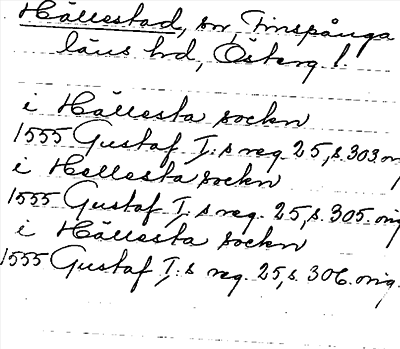 Hällestad, sn, Finspånga
läns hd, Österg l.
i Hällesta sockn
1555 Gustaf I:s reg. 25, s. 303. or
i Hellesta sockn
1555 Gustaf I:s reg. 25, s. 305. orig
i Hällesta sockn
1555 Gustaf I:s reg. 25, s. 306. orig.